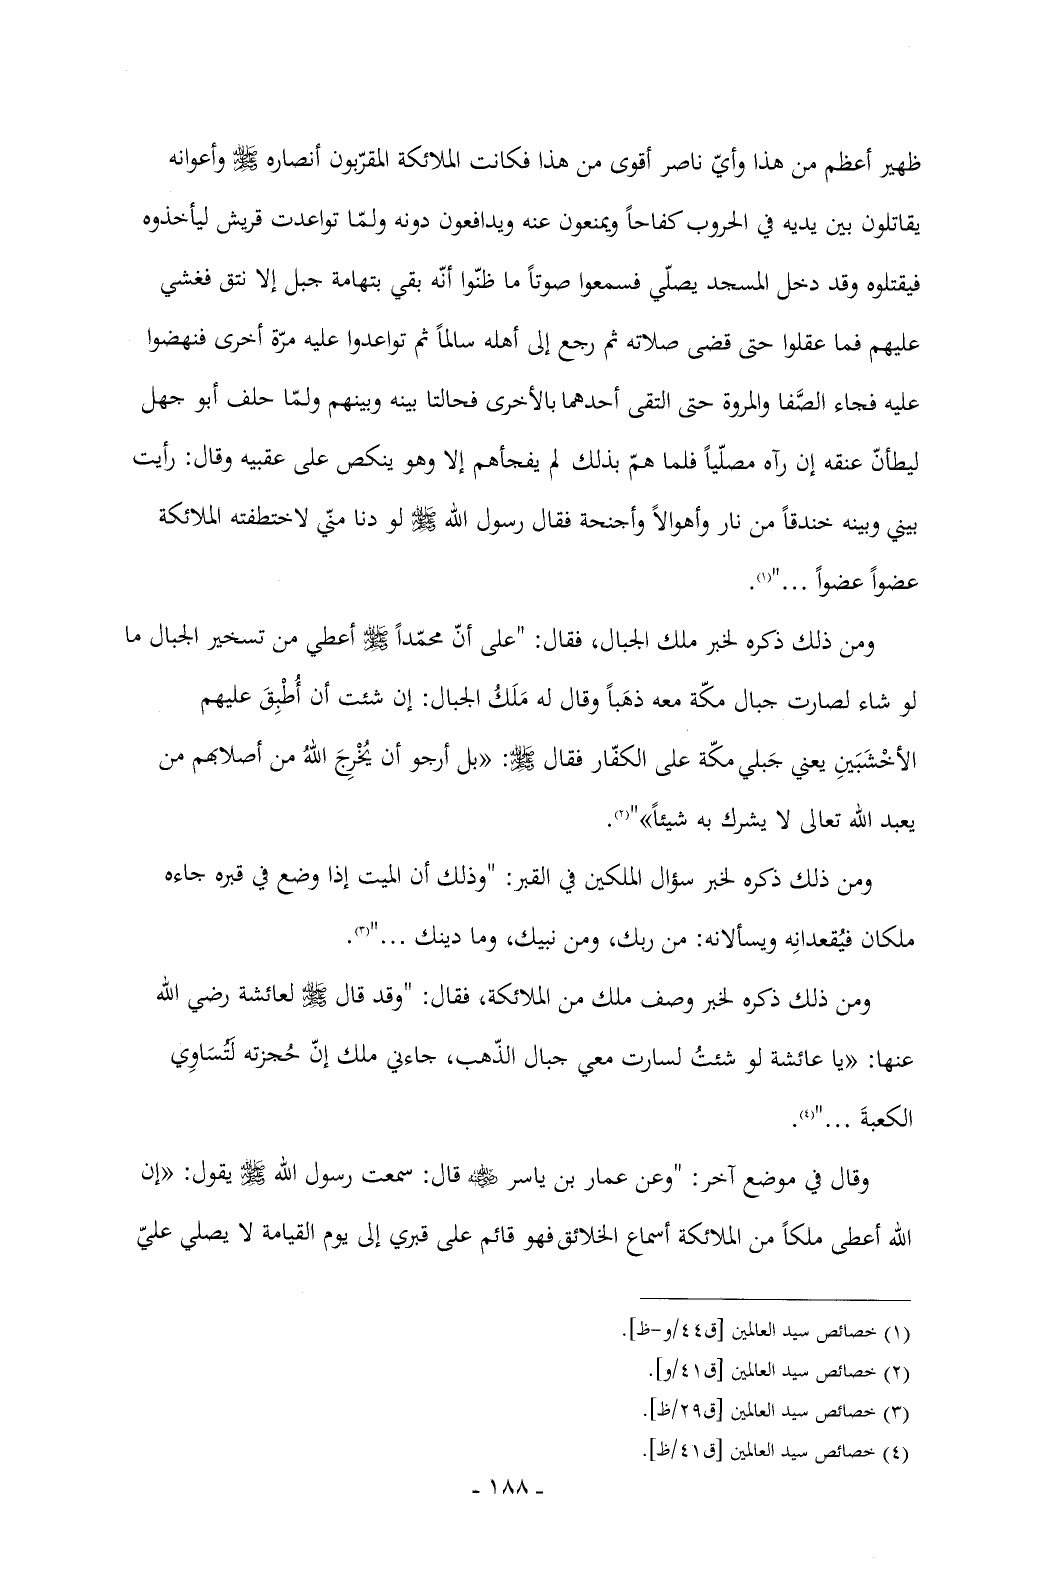 ظهير أعظم من هذا وأيّ ناصر أقوى من هذا فكانت الملائكة المقرّبون أنصاره ﷺ وأعوانه
يقاتلون بين يديه في الحروب كفاحاً ويمنعون عنه ويدافعون دونه ولمّا تواعدت قريش ليأخذوه
فيقتلوه وقد دخل المسجد يصلّي فسمعوا صوتاً ما ظنّوا أنّه بقي بتهامة جبل إلا نتق فغشي
عليهم فما عقلوا حتى قضى صلاته ثم رجع إلى أهله سالماً ثم تواعدوا عليه مرّة أخرى فنهضوا
عليه فجاء الصَّفا والمروة حتى التقى أحدهما بالأخرى فحالتا بينه وبينهم ولمّا حلف أبو جهل
ليطأنّ عنقه إن رآه مصلّياً فلما همّ بذلك لم يفجأهم إلا وهو ينكص على عقبيه وقال: رأيت
بيني وبينه خندقاً من نار وأهوالاً وأجنحة فقال رسول الله ﷺ لو دنا منّي لاختطفته الملائكة
عضواً عضواً ..."(١).
ومن ذلك ذكره لخبر ملك الجبال، فقال: "على أنّ محمّداً ﷺ أعطي من تسخير الجبال ما
لو شاء لصارت جبال مكّة معه ذهَباً وقال له مَلَكُ الجبال: إن شئت أن أُطْبِقَ عليهم
الأخْشَبَينِ يعني جَبلي مكّة على الكفّار فقال ﷺ: «بل أرجو أن يُخْرِجَ اللهُ من أصلابهم من
يعبد الله تعالى لا يشرك به شيئاً»"(٢).
ومن ذلك ذكره لخبر سؤال الملكين في القبر: "وذلك أن الميت إذا وضع في قبره جاءه
ملكان فيُقعدانِه ويسألانه: من ربك، ومن نبيك، وما دينك ..."(٣).
ومن ذلك ذكره لخبر وصف ملك من الملائكة، فقال: "وقد قال ﷺ لعائشة رضي الله
عنها: «يا عائشة لو شئتُ لسارت معي جبال الذّهب، جاءني ملك إنّ حُجزته لَتُسَاوِي
الكعبةَ ..."(٤).
وقال في موضع آخر: "وعن عمار بن ياسر ﷺ قال: سمعت رسول الله ﷺ يقول: «إن
الله أعطى ملكاً من الملائكة أسماع الخلائق فهو قائم على قبري إلى يوم القيامة لا يصلي عليّ
(١) خصائص سيد العالمين [ق٤٤/و-ظ].
(٢) خصائص سيد العالمين [ق٤١/و].
(٣) خصائص سيد العالمين [ق٢٩/ظ].
(٤) خصائص سيد العالمين [ق٤١/ظ].
- ١٨٨ -